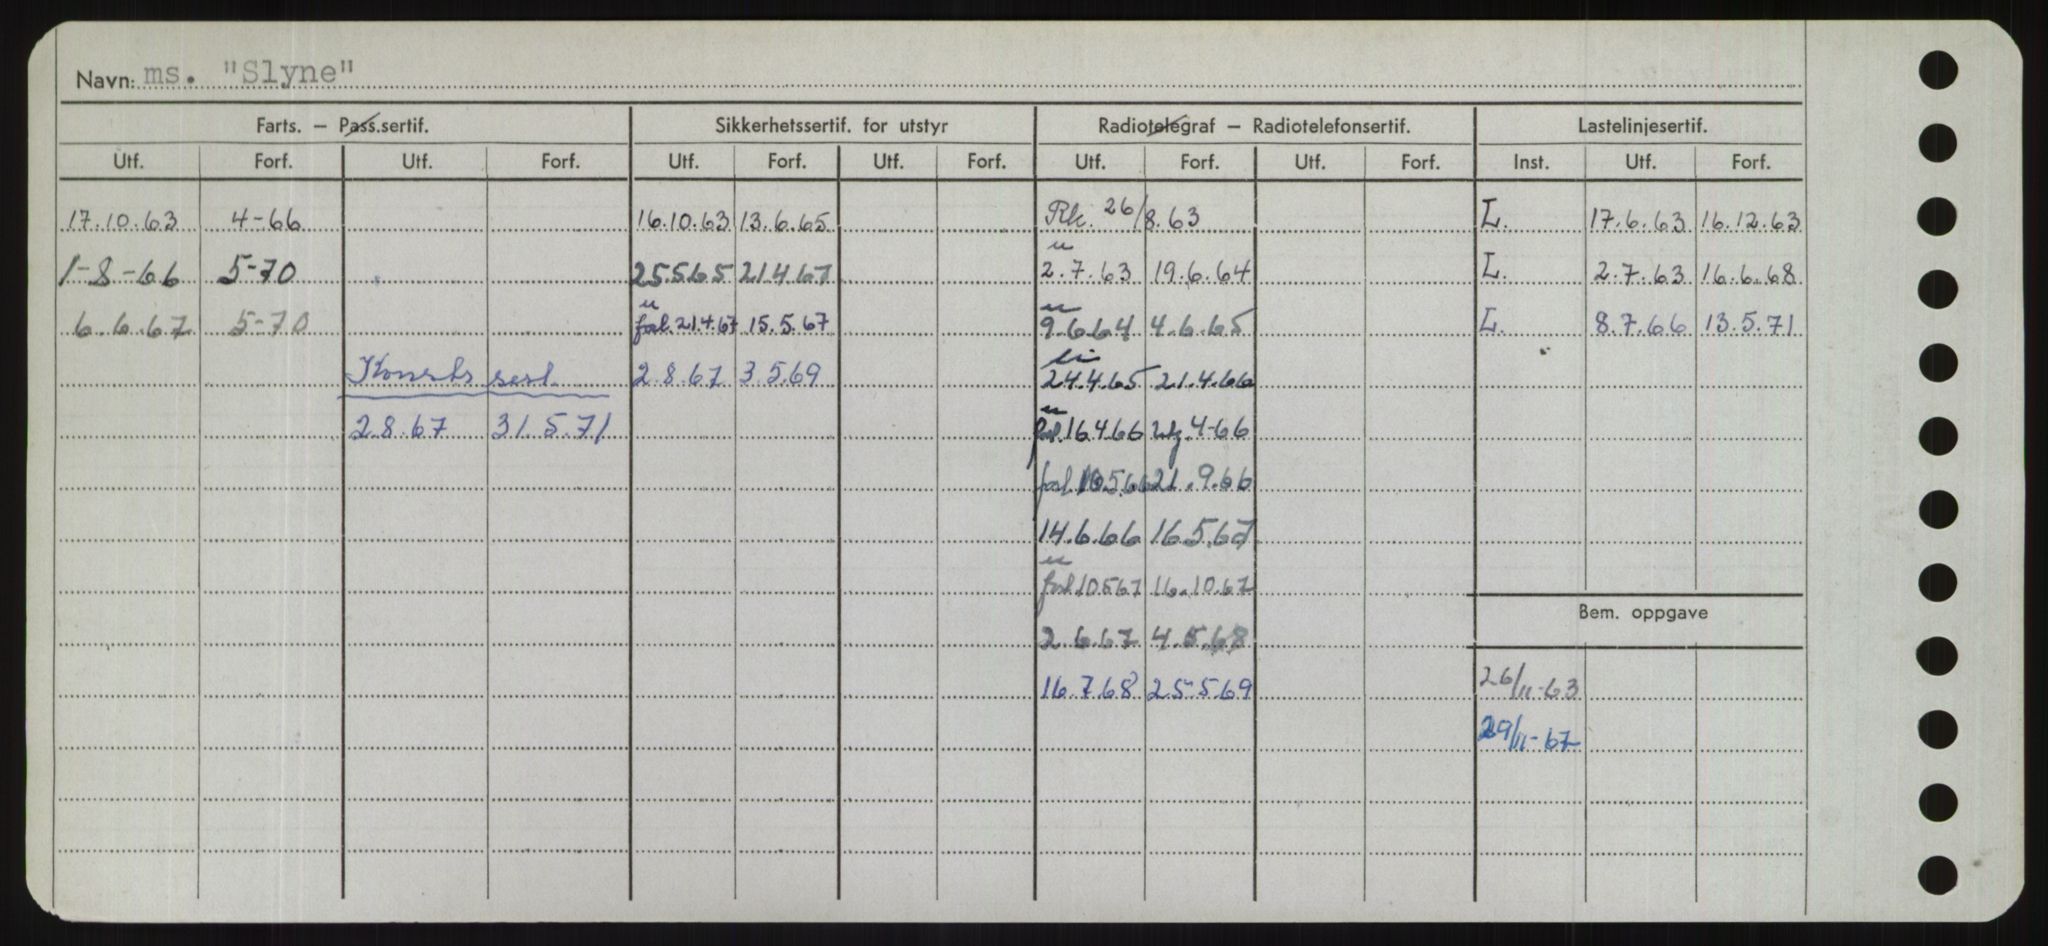 Navn: ms. "Slyne"
Farts. – Pass.sertif. Sikkerhetssertif. for utstyr Radiotelegraf – Radiotelefonsertif. Lastelinjesertif.
Utf. Forf. Utf. Forf. Utf. Forf. Utf. Forf. Utf. Forf. Utf. Forf. Inst. Utf. Forf.
17.10.63 4-66 16.10.63 13.6.65 Rk. 26/8.63 L. 17.6.63 16.12.63
1-8-66 5-70 25.5.65 21.4.67 2.7.63 19.6.64 L. 2.7.63 16.6.68
6.6.67 5-70 forl. 21.4.67 15.5.67 9.6.64 4.6.65 L. 8.7.66 13.5.71
Konstr. sert. 2.8.67 3.5.69 24.4.65 21.4.66
2.8.67 31.5.71 forl. 16.4.66 4-66
forl. 10.5.66 21.9.66
14.6.66 16.5.67
forl. 10.5.67 16.10.67
Bem. oppgave
2.6.67 4.5.68
16.7.68 25.5.69 26/11-63
29/11-67